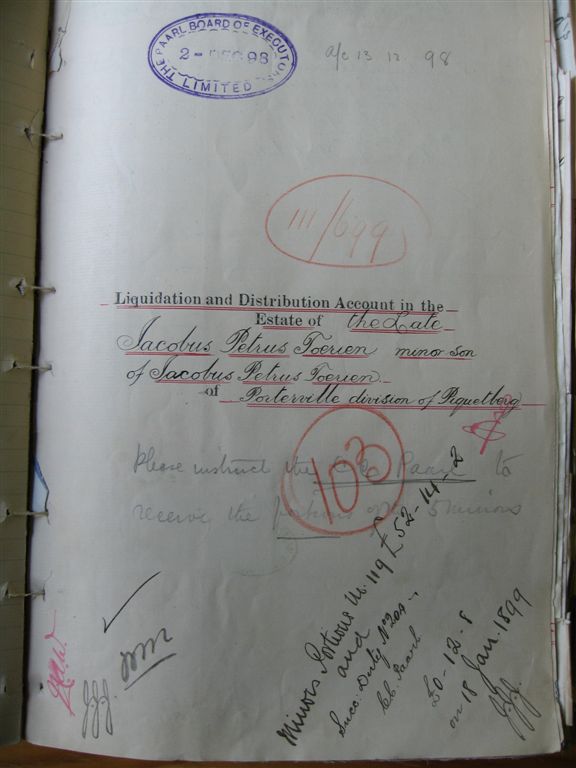 THE PAARL BOARD OF EXECUTORS
2 - DEC 98
LIMITED
a/c 13 12 98
111/699
Liquidation and Distribution Account in the
Estate of the Late
Jacobus Petrus Toerien minor son
of Jacobus Petrus Toerien
of Porterville division of Piquetberg
103
Please instruct the Paarl to
receive the portions of minors
Minors Portions M. 119 £52-14-2
and
Succ. Duty No
Paarl
£0-12-8
on 18 Jan. 1899